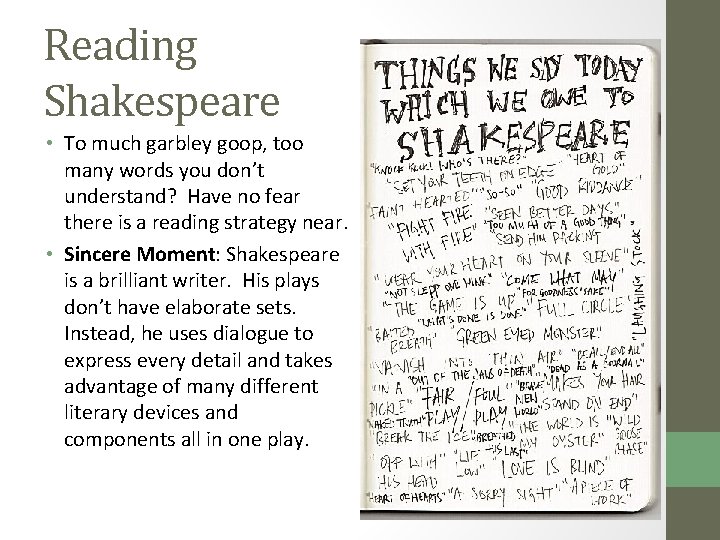 Reading
Shakespeare
• To much garbley goop, too
many words you don't
understand? Have no fear
there is a reading strategy near.
• Sincere Moment: Shakespeare
is a brilliant writer. His plays
don't have elaborate sets.
Instead, he uses dialogue to
express every detail and takes
advantage of many different
literary devices and
components all in one play.
THINGS WE SAY TODAY
WHICH WE OWE TO
SHAKESPEARE
"KNOCK KNOCK! WHO'S THERE?" "HEART OF GOLD"
"SET YOUR TEETH ON EDGE"
"FAINT HEARTED" "SO-SO" "GOOD RIDDANCE"
"FIGHT FIRE WITH FIRE" "SEEN BETTER DAYS"
"TOO MUCH OF A GOOD THING"
"SEND HIM PACKING"
"WEAR YOUR HEART ON YOUR SLEEVE"
"NOT SLEPT ONE WINK" "COME WHAT MAY"
"THE GAME IS UP" "FOR GOODNESS' SAKE" "FULL CIRCLE"
"LAUGHING STOCK"
"WHAT'S DONE IS DONE"
"BAITED BREATH" "GREEN EYED MONSTER"
"VANISH INTO THIN AIR" "BE ALL/END ALL"
"OUT OF THE JAWS OF DEATH" "DEAD AS A DOORNAIL"
"IN A PICKLE" "FAIR/FOUL PLAY/PLAY" "BRAVE NEW WORLD" "MAKES YOUR HAIR STAND ON END"
"NAKED TRUTH" "THE WORLD IS MY OYSTER" "WILD GOOSE CHASE"
"BREAK THE ICE" "BREATHED HIS LAST"
"OFF WITH HIS HEAD" "LIE LOW" "LOVE IS BLIND"
"HEART OF HEARTS" "A SORRY SIGHT" "A PIECE OF WORK"